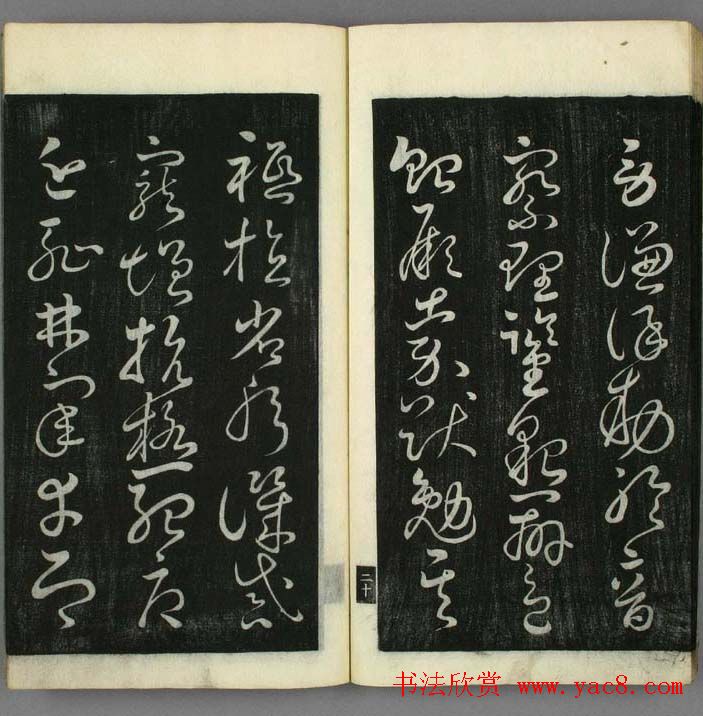 勞謙謹敕聆音
察理鑒貌辨色
貽厥嘉猷勉其
二十
祗植省躬譏誡
寵增抗極殆辱
近恥林皋幸即
书法欣赏 www.yac8.com